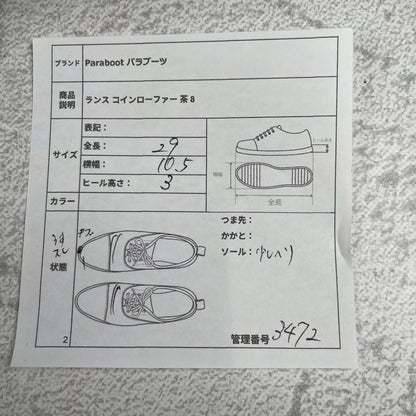 ブランド Paraboot パラブーツ
商品説明 ランス コインローファー 茶 8
サイズ
表記：
全長： 29
横幅： 10.5
ヒール高さ： 3
ヒール高さ
横幅
全長
カラー
状態
キズ
つま先：
かかと：
ソール： 少しヘリ
2
管理番号 3472